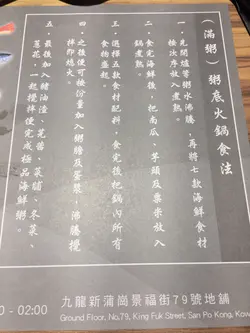 （滿粥）粥底火鍋食法
一、先開爐等粥水沸騰，再將七款海鮮食材
按次序放入煮熟。
二、食完海鮮後，把南瓜、芋頭及粟米放入
鍋煮熟。
三、選擇五款食材配料，食完後把鍋內所有
食物盛起。
四、之後便可按份量加入粥膽及蛋漿，沸騰攪
拌即熄火。
五、最後加豬油渣、芫茜、菜脯、冬菜、
蔥花，一起攪拌便完成極品海鮮粥。
0 - 02:00
九龍新蒲崗景福街79號地舖
Ground Floor, No.79, King Fuk Street, San Po Kong, Kow